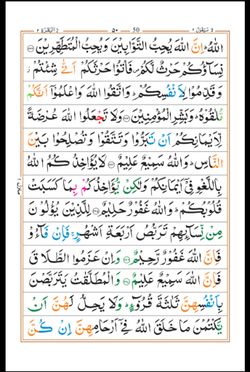 سَيَقُولُ ٢ ٥٠ 50 اَلْبَقَرَة ٢
اللّٰهُ ؕ اِنَّ اللّٰهَ يُحِبُّ التَّوَّابِيْنَ وَيُحِبُّ الْمُتَطَهِّرِيْنَ
نِسَآؤُكُمْ حَرْثٌ لَّكُمْ ۪ فَاْتُوْا حَرْثَكُمْ اَنّٰى شِئْتُمْ ؗ
وَقَدِّمُوْا لِاَنْفُسِكُمْ ؕ وَاتَّقُوا اللّٰهَ وَاعْلَمُوْۤا اَنَّكُمْ
مُّلٰقُوْهُ ؕ وَبَشِّرِ الْمُؤْمِنِيْنَ وَلَا تَجْعَلُوا اللّٰهَ عُرْضَةً
لِّاَيْمَانِكُمْ اَنْ تَبَرُّوْا وَتَتَّقُوْا وَتُصْلِحُوْا بَيْنَ
النَّاسِ ؕ وَاللّٰهُ سَمِيْعٌ عَلِيْمٌ لَا يُؤَاخِذُكُمُ اللّٰهُ
بِاللَّغْوِ فِيْۤ اَيْمَانِكُمْ وَلٰكِنْ يُّؤَاخِذُكُمْ بِمَا كَسَبَتْ
قُلُوْبُكُمْ ؕ وَاللّٰهُ غَفُوْرٌ حَلِيْمٌ لِلَّذِيْنَ يُؤْلُوْنَ
مِنْ نِّسَآئِهِمْ تَرَبُّصُ اَرْبَعَةِ اَشْهُرٍ ۚ فَاِنْ فَآءُوْ
فَاِنَّ اللّٰهَ غَفُوْرٌ رَّحِيْمٌ وَاِنْ عَزَمُوا الطَّلَاقَ
فَاِنَّ اللّٰهَ سَمِيْعٌ عَلِيْمٌ وَالْمُطَلَّقٰتُ يَتَرَبَّصْنَ
بِاَنْفُسِهِنَّ ثَلٰثَةَ قُرُوْٓءٍ ؕ وَلَا يَحِلُّ لَهُنَّ اَنْ
يَّكْتُمْنَ مَا خَلَقَ اللّٰهُ فِيْۤ اَرْحَامِهِنَّ اِنْ كُنَّ